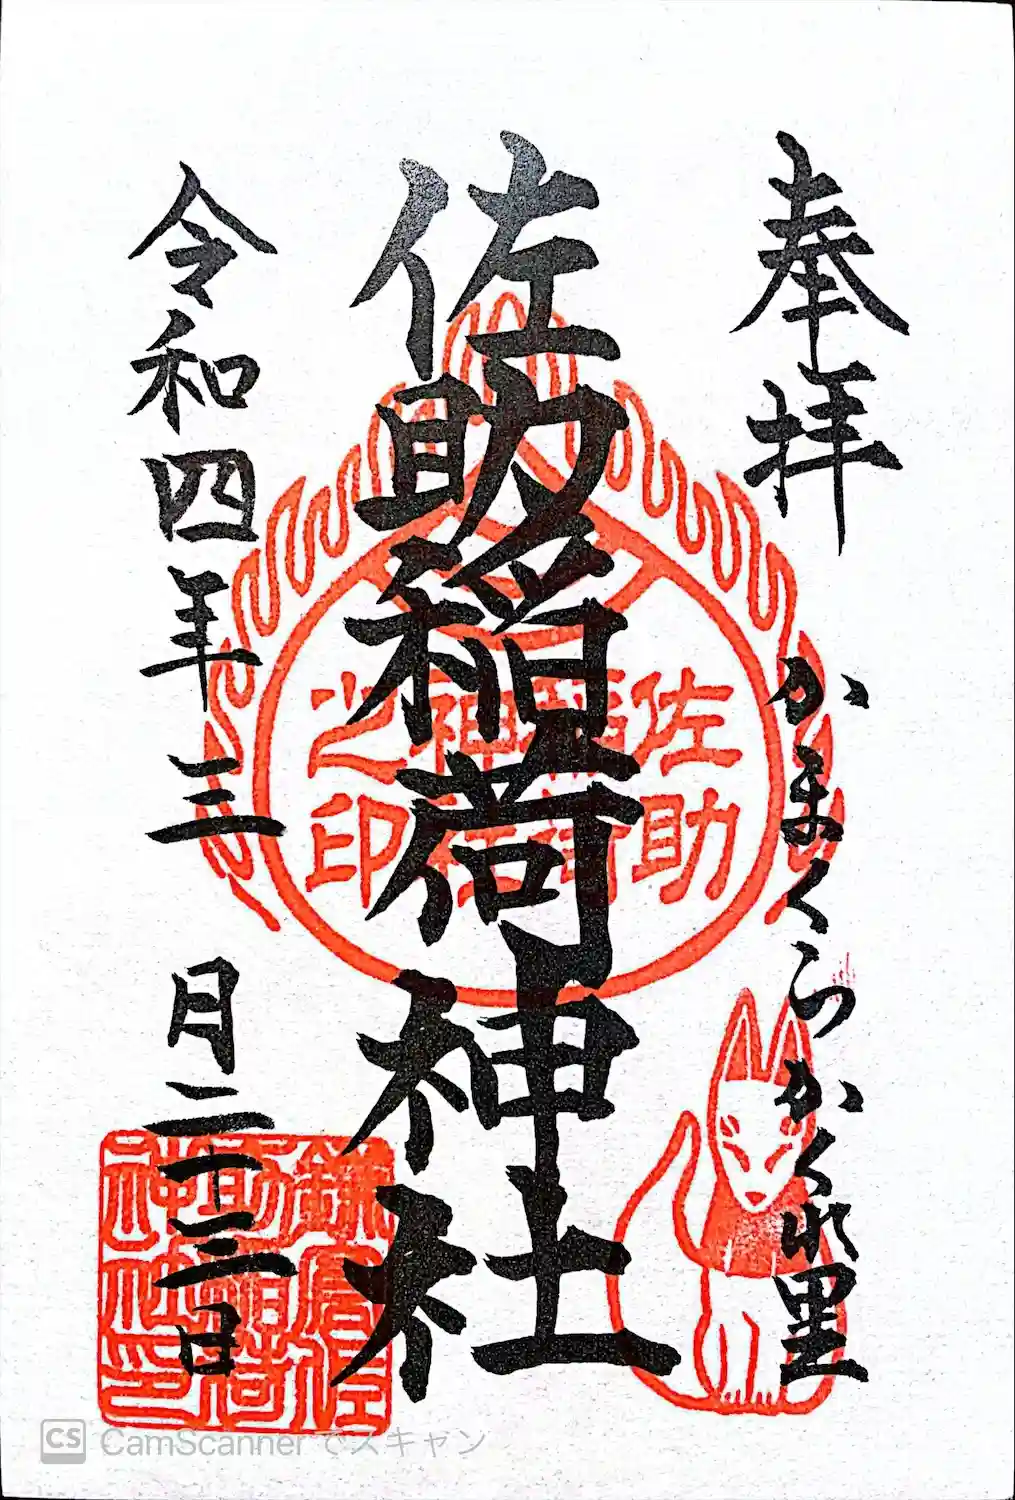 奉拝
かまくらかくれ里
佐助稲荷神社
佐助
稲荷
神社
之印
令和四年三月二十三日
鎌倉佐
助稲荷
神社之印
CS CamScannerでスキャン